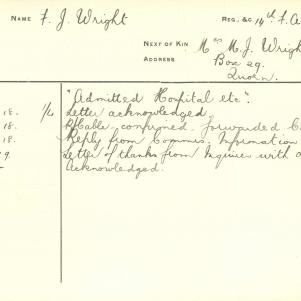 NAME F. J. Wright REG. &C. 14th F. A
NEXT OF KIN Mrs M. J. Wrigh
ADDRESS Box 29.
Quorn.
"Admitted Hospital etc".
18. 1/4 Letter acknowledged
18. R/Cable, confirmed, forwarded C
18. Reply from Commis, Information
9 Letter of thanks from Inquirer with a
Acknowledged.